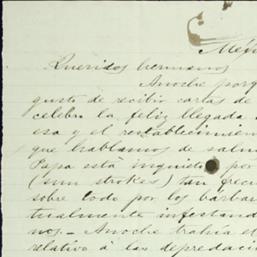 Queridos hermanos
Anoche
gusto de recibir cartas de
celebro la feliz llegada
esa y el restablecimiento
que hablamos de salud
Papa está inquieto por
(sun strokes) tan frecu
sobre todo por los barbar
tualmente infestand
nos.- Anoche trahia el
relativo á las depredacio